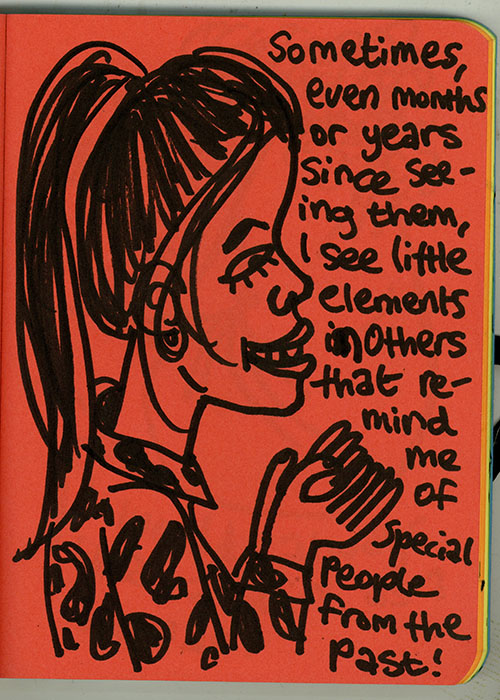 Sometimes,
even months
or years
Since see-
ing them,
I see little
elements
in Others
that re-
mind
me
of
Special
People
from the
Past!